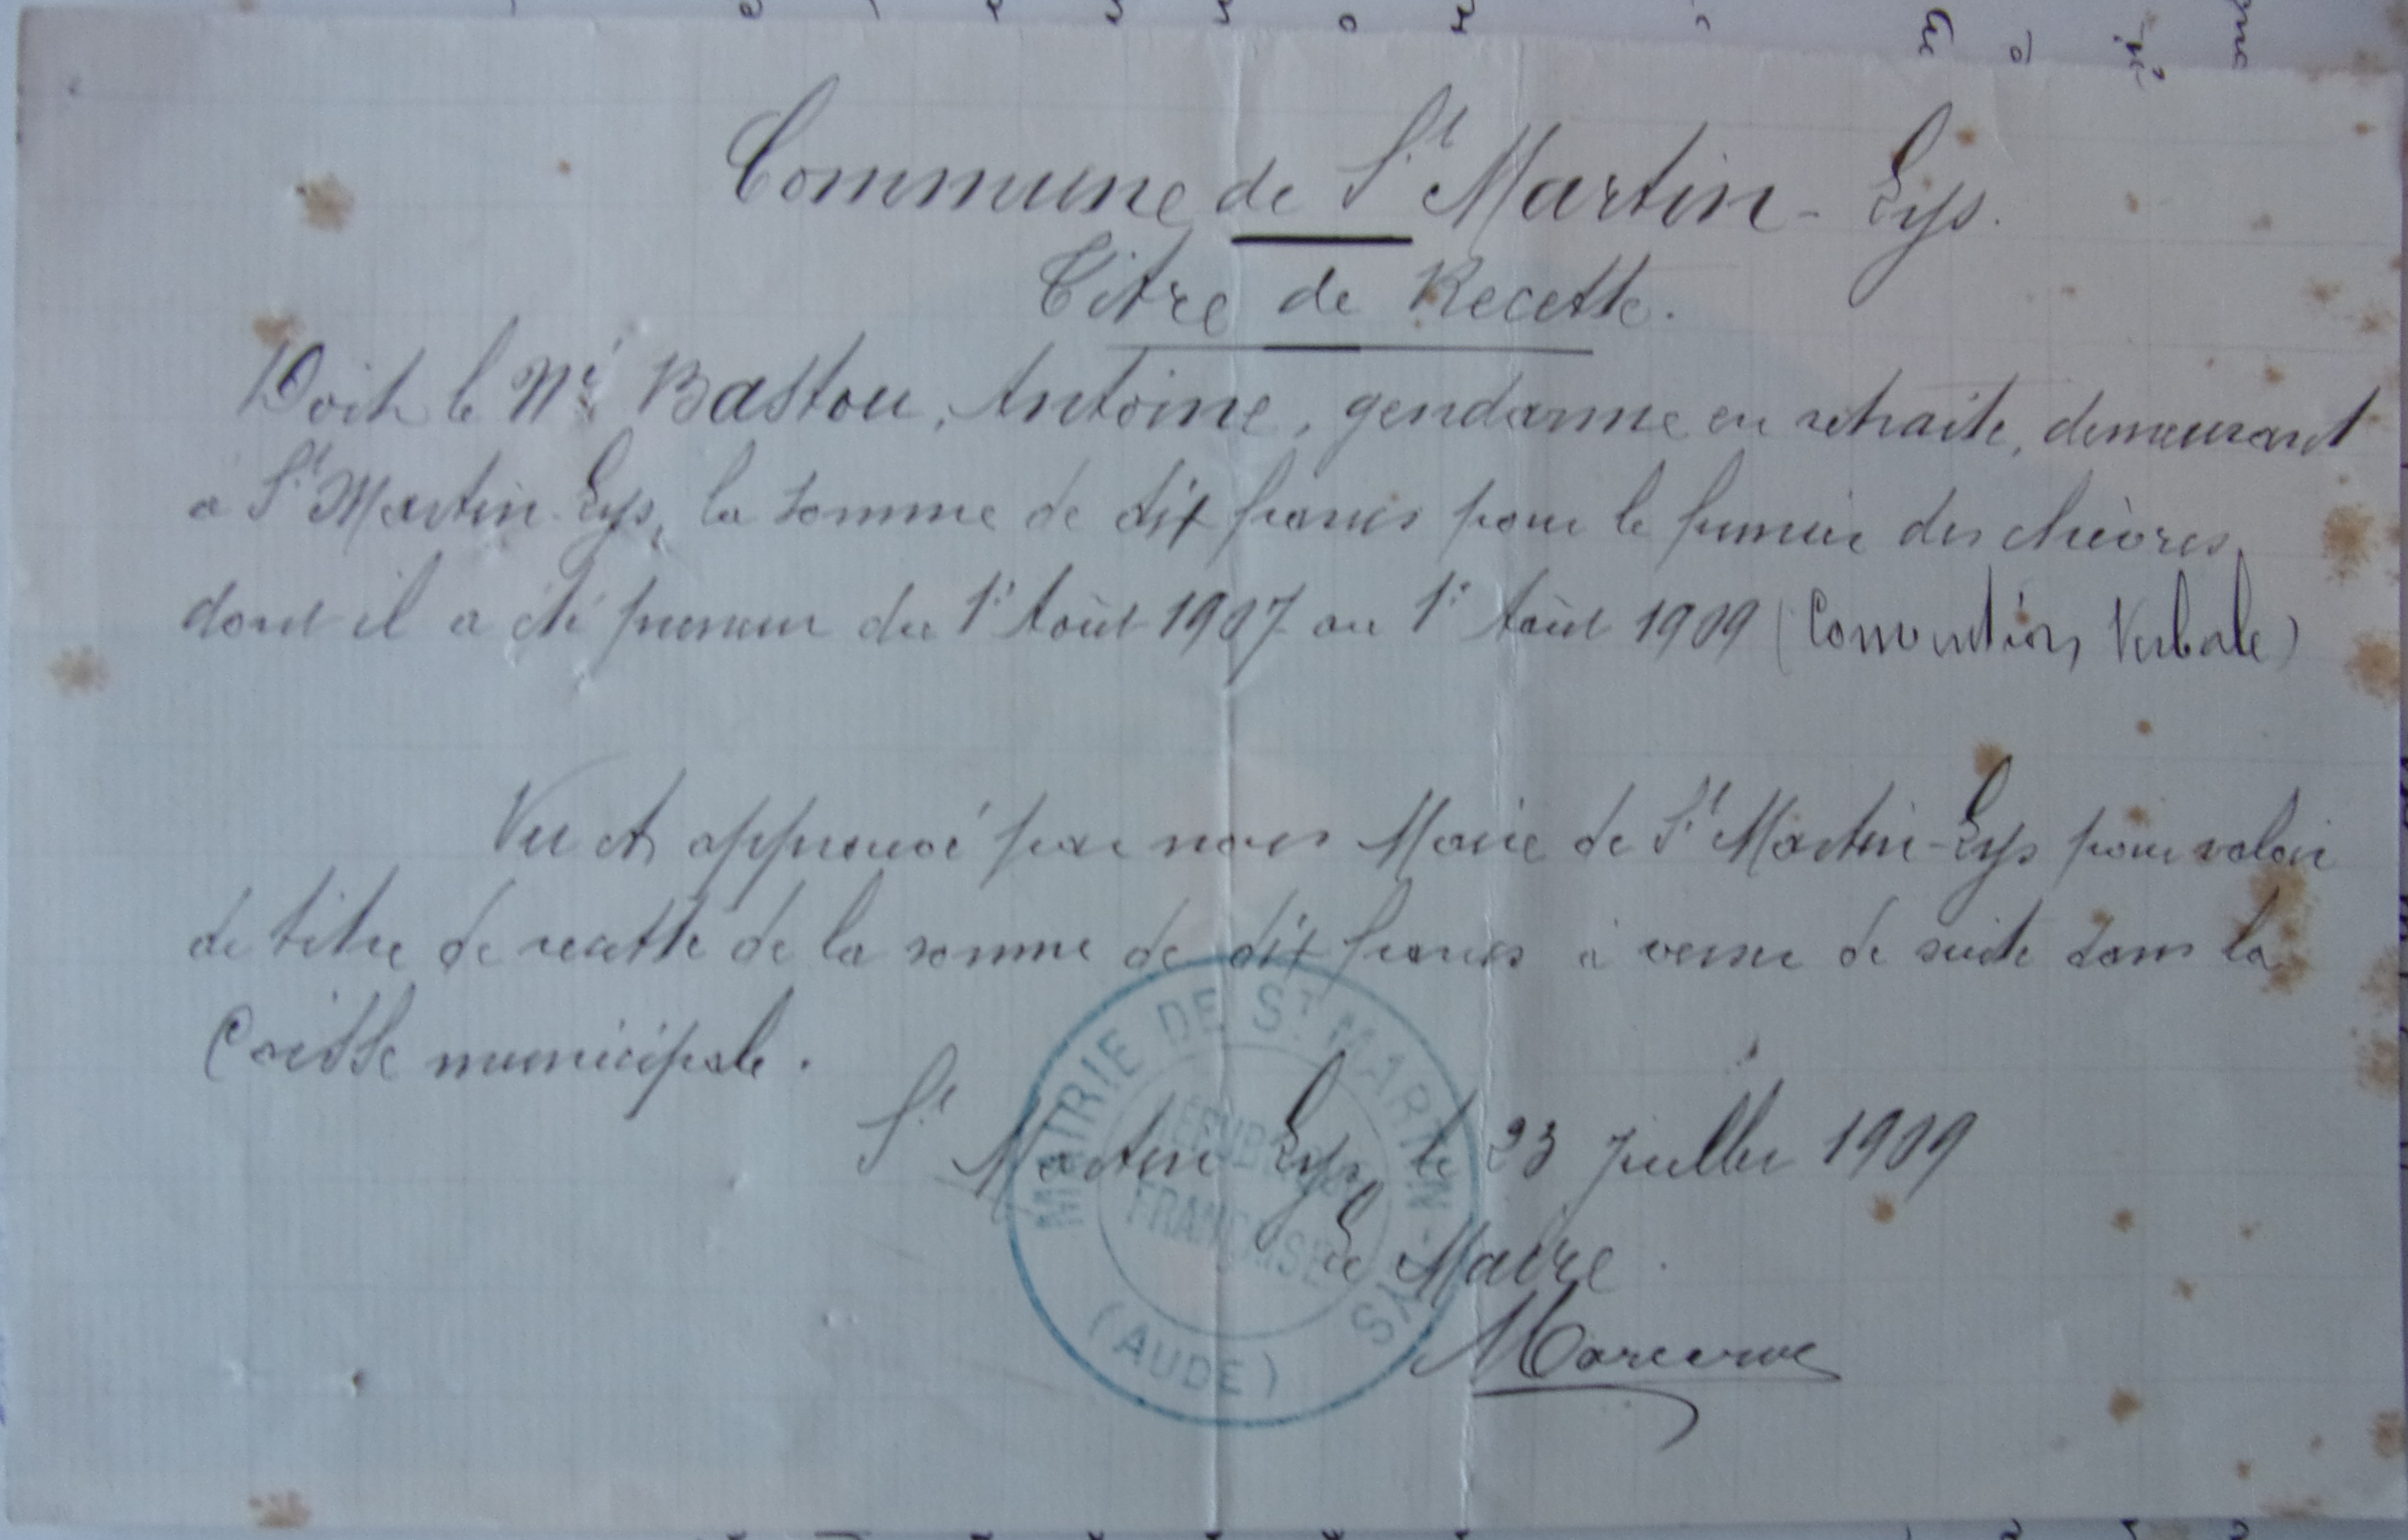 Commune de St Martin-Lys.
Titre de Recette.
Doit le Mr Bastou, Antoine, gendarme en retraite, demeurant
a St Martin-Lys, la somme de dix francs pour le fumier des chèvres,
dont il a été preneur du 1er Août 1907 au 1er Août 1909 (Convention Verbale)
Vu et approuvé par nous Maire de St Martin-Lys pour valoir
de titre de recette de la somme de dix francs à verser de suite dans la
Caisse municipale.
St Martin Lys, le 23 Juillet 1909
Le Maire
MAIRIE DE ST MARTIN-LYS
RÉPUBLIQUE
FRANÇAISE
(AUDE)